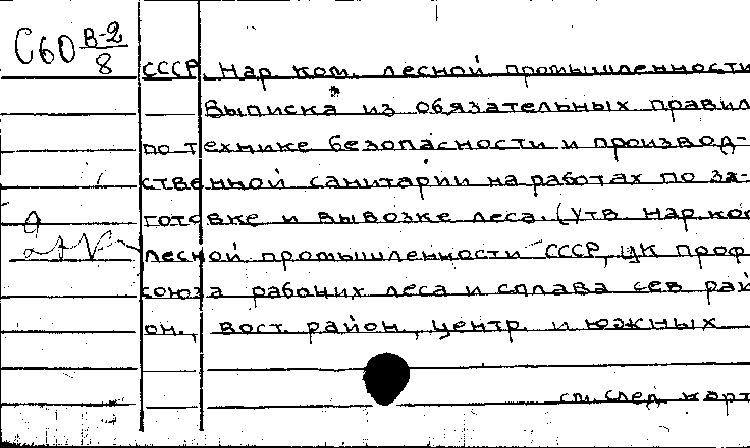 С60 В-2/8
СССР. Нар. ком. лесной промышленности
Выписка из обязательных правил
по технике безопасности и производ-
ственной санитарии на работах по за-
готовке и вывозке леса. (Утв. Нар. ком
лесной промышленности СССР, ЦК проф
союза рабочих леса и сплава сев. рай
он., вост. район., центр. и южных
см. след. карт